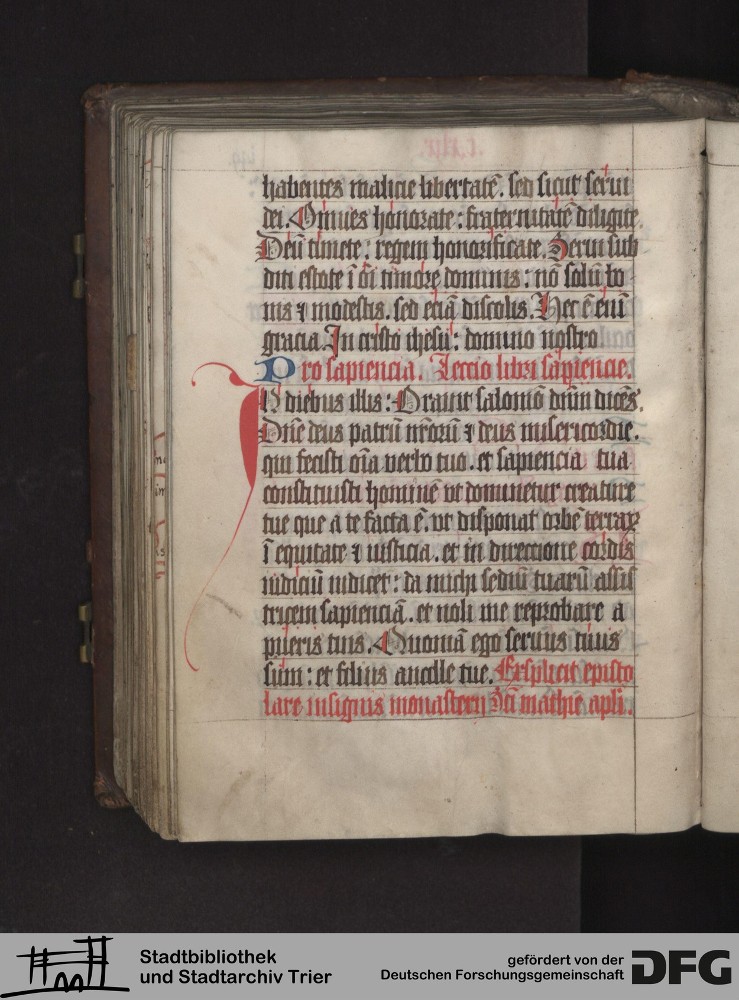 habentes malicie libertatē. sed sicut serui
dei. Omnes honorate : fraternitatē diligite.
Deū timete : regem honorificate. Serui sub
diti estote ī oī timore dominis : nō solū bo
nis ⁊ modestis. sed eciā discolis. Hec ē enī
gracia. In cristo ihesu : domino nostro
Pro sapiencia. Leccio libri sapiencie.
IN diebus illis : Orauit salomō dn̄m dicēs.
Dn̄e deus patrū nr̄orū ⁊ deus misericordie.
qui fecisti oīa verbo tuo. et sapiencia tua
constituisti hominē vt dominetur creature
tue que a te facta ē. vt disponat orbē terraꝝ
ī equitate ⁊ iusticia. et in direccione cordis
iudiciū iudicet : da michi sediū tuarū assis
tricem sapienciā. et noli me reprobare a
pueris tuis. Quoniā ego seruus tuus
sum : et filius ancille tue. Explicit episto
lare insignis monasterij Sc̄i mathie apli.
Stadtbibliothek
und Stadtarchiv Trier
gefördert von der
Deutschen Forschungsgemeinschaft
DFG